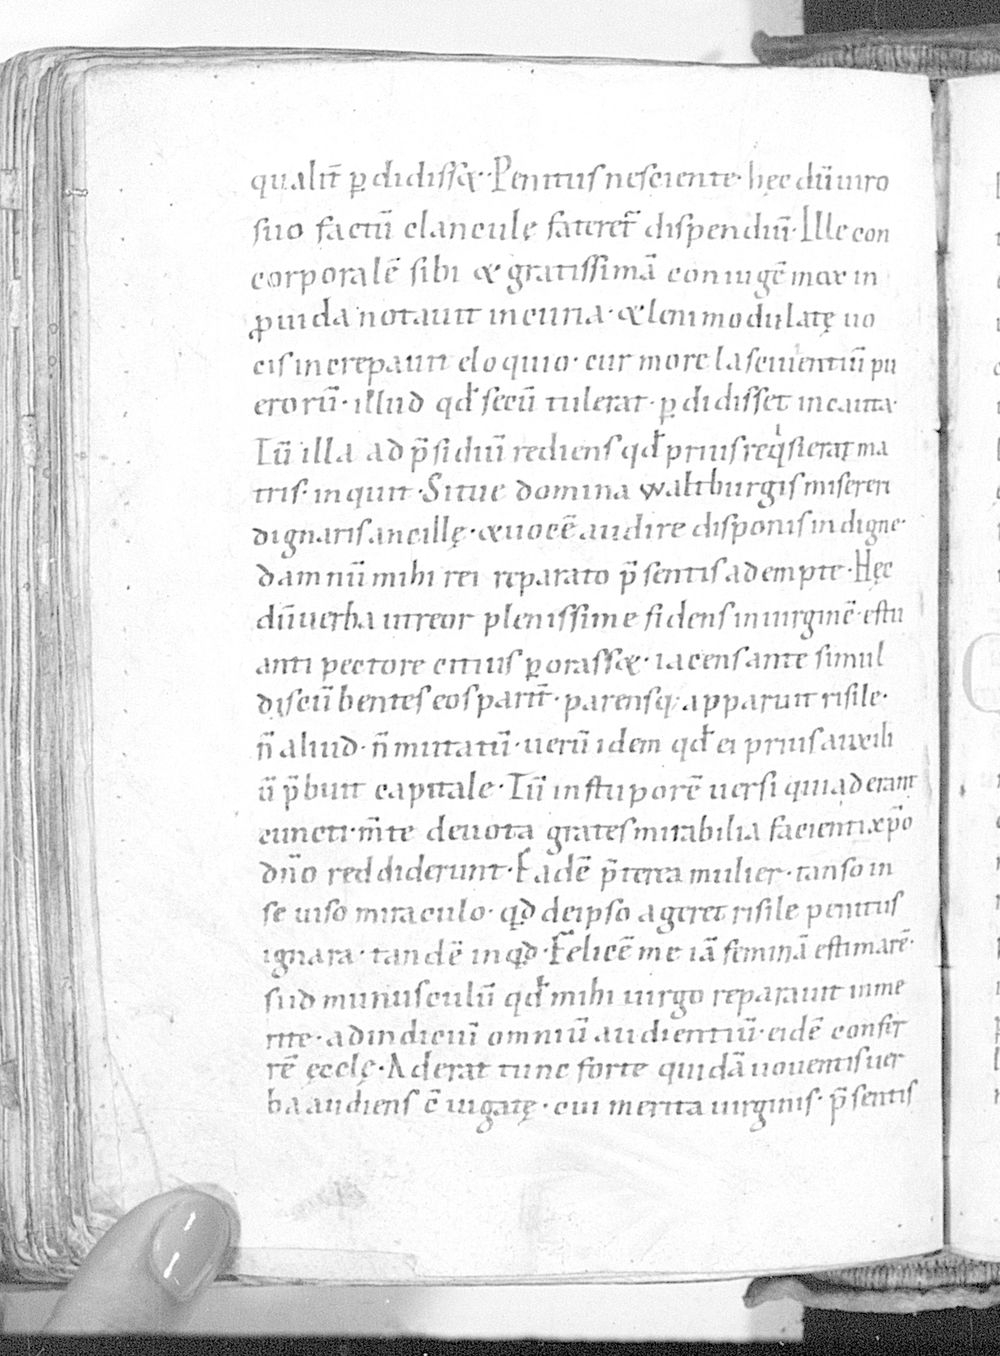 qualit̄ ꝑdidiss&·Penitus nesciente· hęc dū uiro
suo factū clancule fateret̄ dispendiū·Ille con
corporalē sibi & gratissimā coniugē mox in
ꝓuida notauit incuria· & leni modulatę uo
cis increpauit eloquio· cur more lasciuientiū pu
erorū· illud qđ secū tulerat· ꝑdidisset incauta·
Tū illa ad p̄sidiū rediens qđ prius reqͥsierat ma
tris· inquit· Si tuę domina waltburgis misereri
dignaris ancillę· & uocē audire disponis indignę·
damnū mihi rei reparato p̄sentis adempte· Hęc
dū uerba ut reor plenissime fidens in uirginē· estu
anti pectore citius ꝑorass&· iacens ante simul
discūbentes eos parit̄· parensq; apparuit risile·
n̄ aliud· n̄ mutatū· uerū idem qđ ei prius auxili
ū p̄buit capitale· Tū in stuporē uersi qui aderant
cuncti· m̄te deuota grates mirabilia facienti xp̄o
dn̄o reddiderunt· Eadē p̄terea mulier· tanso in
se uiso miraculo· qđ de ipso ageret risile penitus
ignara· tandē inqđ· Felicē me iā feminā estimarē·
sud munusculū qđ mihi uirgo reparauit inme
rite· ad indiciū omniū audientiū· eidē confer
rē ęcclę· Aderat tunc forte quidā uouentis uer
ba audiens ē uigatę· cui merita uirginis· p̄sentis